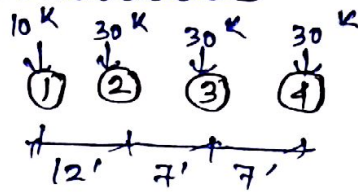 10 K 30 K 30 K 30 K
1 2 3 4
12' 7' 7'